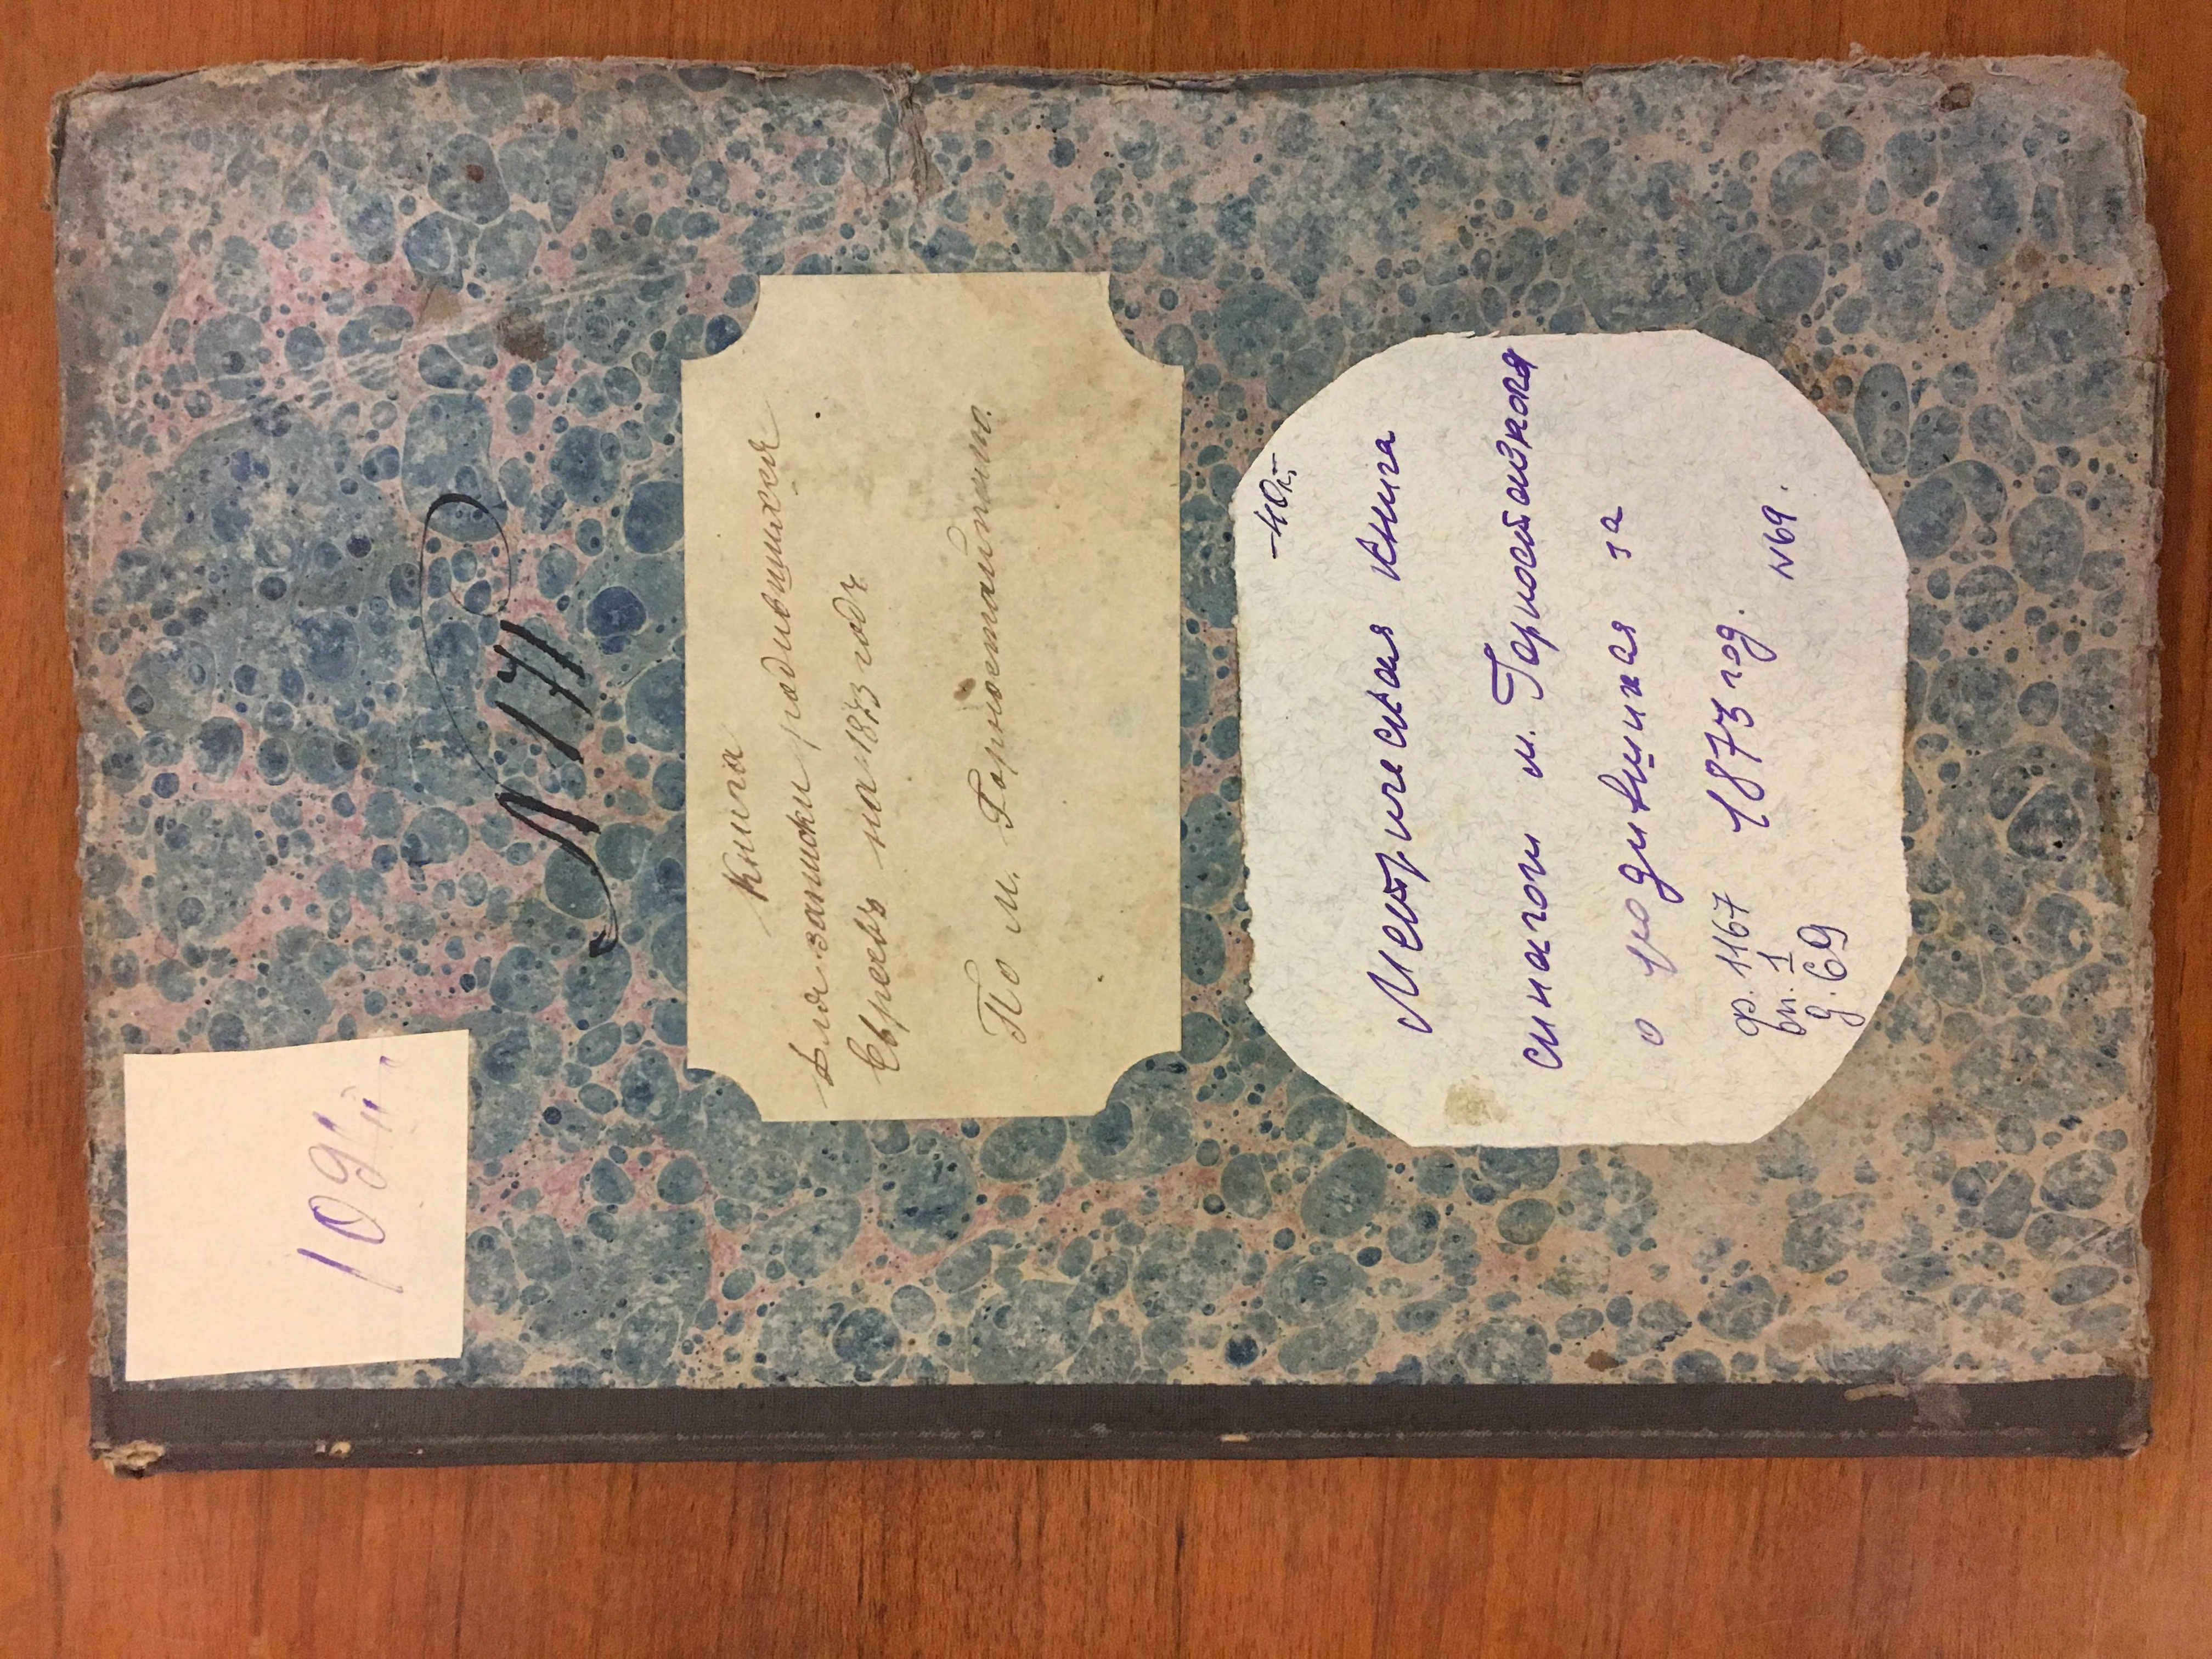 109
N 171
Книга
для записки родившихся
Евреевъ на 1873 годъ
По м. Горностайполю.
Метрическая книга
синагоги м. Горностаизноля
о родившихся за
1873 год.
ф. 1167
оп. 1
д. 69
№69.